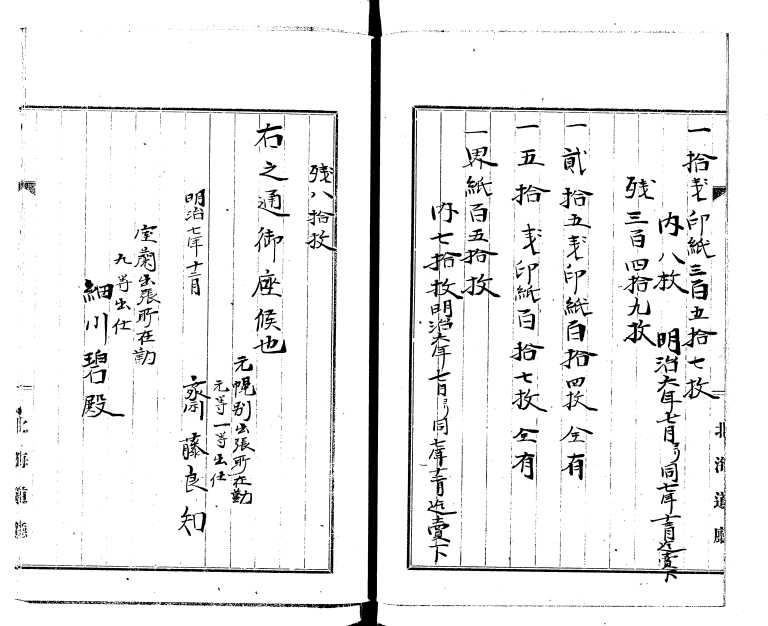 一拾戔印紙三百五拾七枚
内八枚 明治六年七月ゟ同七年十二月迄賣下
残三百四拾九枚
一貳拾五戔印紙百拾四枚全有
一五拾戔印紙百拾七枚全有
一界紙百五拾枚
内七拾枚明治六年七月ゟ同七年十二月迄賣下
北海道廳
残八拾枚
右之通御座候也
元幌別出張所在勤
元等外一等出仕
明治七年十二月
齋藤良知
室蘭出張所在勤
九等出仕
細川碧殿
北海道廳